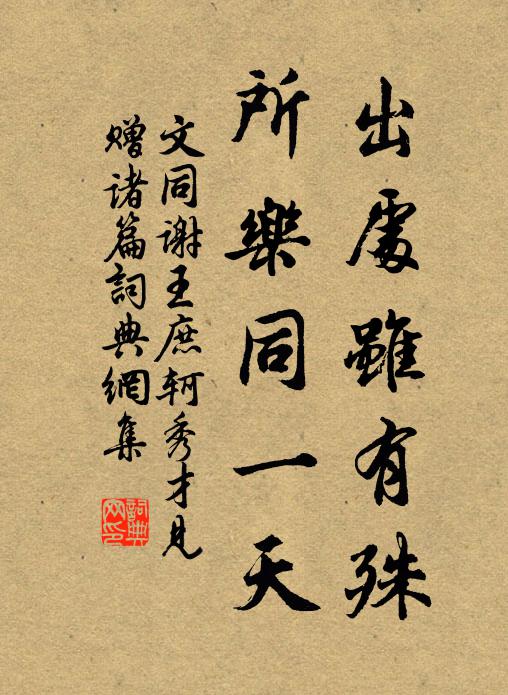 出處雖有殊
所樂同一天
文同謝王庶軻秀才見
贈诸篇詞典網集
詞典
网印